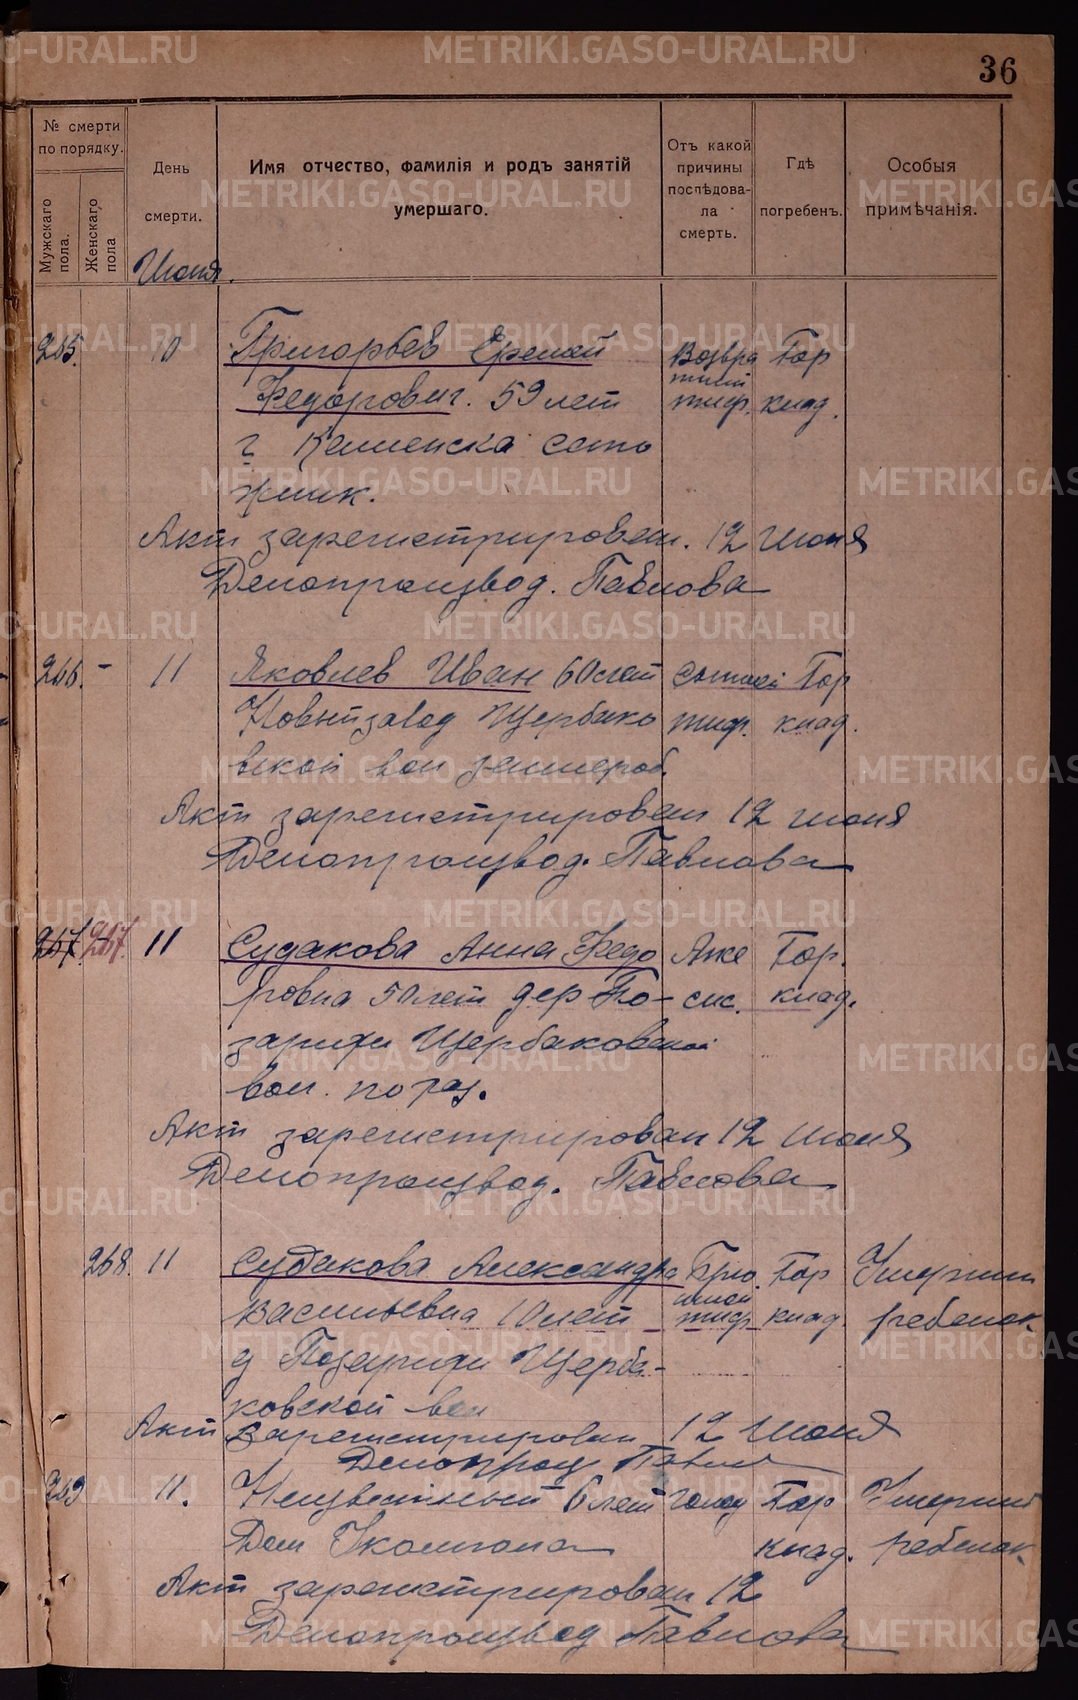 36
№ смерти по порядку.
Мужскаго пола.
Женскаго пола
День смерти.
Имя отчество, фамилія и родъ занятій умершаго.
Отъ какой причины послѣдовала смерть.
Гдѣ погребенъ.
Особыя примѣчанія.
Июня.
265. 10 Григорьев Еремей Возвра Гор
тный
Федорович. 59 лет тиф. клад.
г Каменска сапо
жник.
Акт зарегистрирован. 12 июня
Делопроизвод. Павлова
266. - 11 Яковлев Иван 60 лет сыпной Гор
Новыйзавод Щербако тиф. клад.
вской вол землероб.
Акт зарегистрирован 12 июня
Делопроизвод. Павлова
267. 267. 11 Судакова Анна Федо Гор.
ровна 50 лет дер По- клад.
зарихи Щербаковской
вол.
Акт зарегистрирован 12 июня
Делопроизвод. Павлова
268. 11 Судакова Александра Брю. Гор Умерший
шной
Васильевна 10 лет тиф клад. ребенок
д Позарихи Щерба-
ковской вол
Акт зарегистрирован 12 июня
Делопроиз Павло
269 11. Неизвестный 6 лет голод Гор Умерший
Дом клад. ребенок
Акт зарегистрирован 12
Делопроизвод Павлова
METRIKI.GASO-URAL.RU